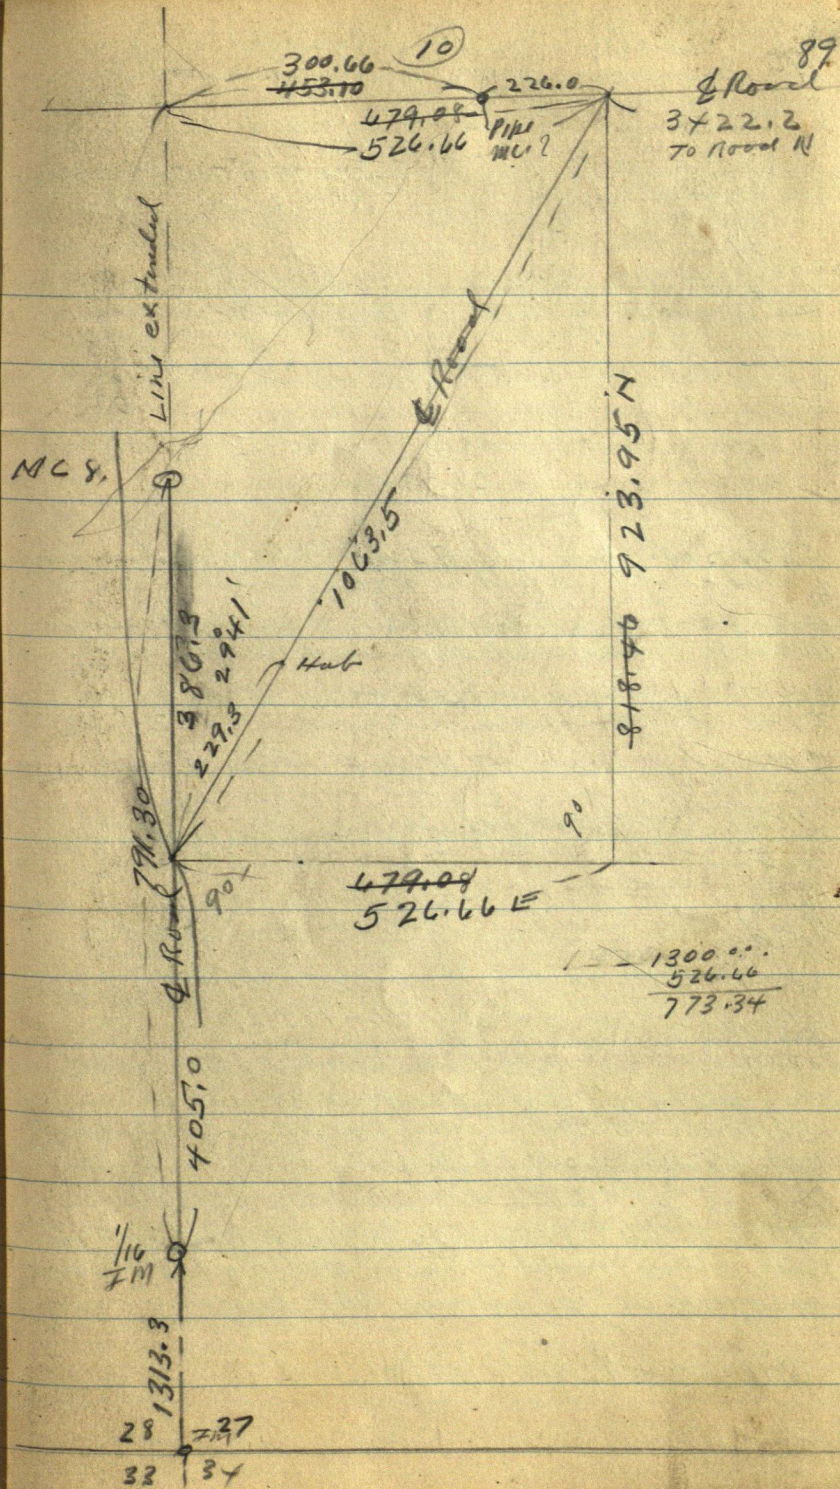 89
10
300.66
453.10
226.0
℄ Road
479.08
526.66
Pipe
MC.?
3+22.2
To Road N
Line extended
MC 8.
℄ Road
1063.5
923.95 N
818.40
386.3
29°41'
229.3
Hub
791.30
90
90
479.08
526.66 E
℄ Road
1300.00
526.66
773.34
405.0
1/16
IM
1313.3
28 IM 27
33 34